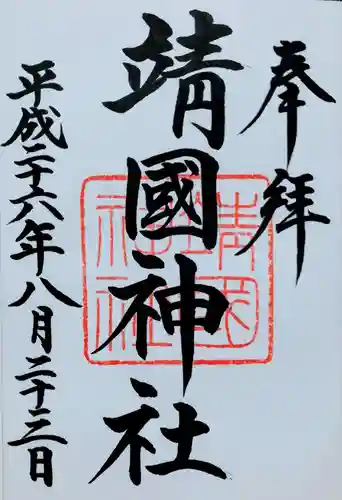 奉拝
靖國神社
靖國神社
平成二十六年八月二十三日